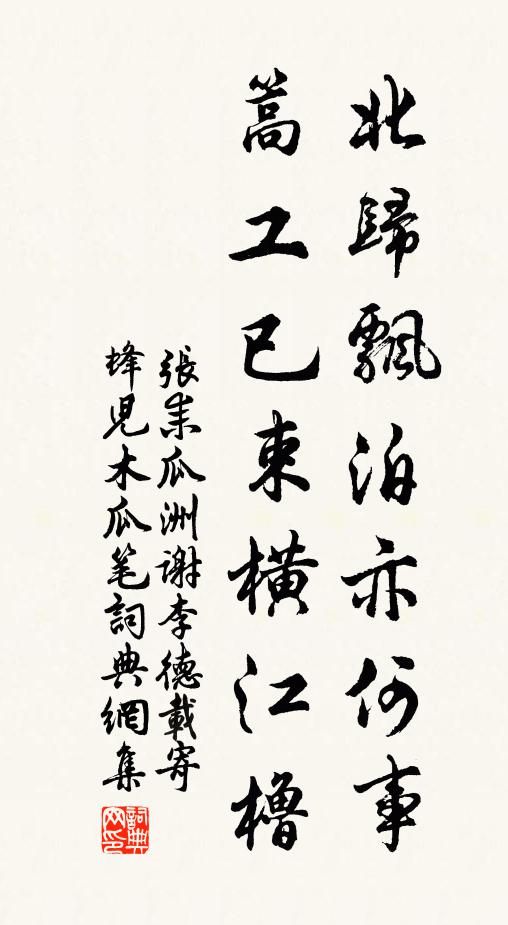 北歸飄泊亦何事
篙工已束橫江櫓
張耒瓜洲謝李德載寄
蜂児木瓜笔詞典網集
詞典网印